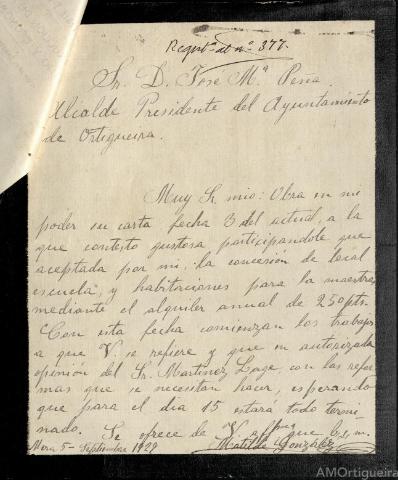 Regist. al nº 377.
Sr. D. Jose Mª Pena
Alcalde Presidente del Ayuntamiento
de Ortigueira.
Muy Sr. mio: Obra en mi
poder su carta fecha 3 del actual, a la
que contesto gustosa participandole que
aceptada por mi, la concesion de local
escuela, y habitaciones para la maestra
mediante el alquiler anual de 250 pts.
Con esta fecha comienzan los trabajos
a que V. se refiere y que en autorizada
opinión del Sr. Martinez Lage, con las refor
mas que se necesitan hacer, esperando
que para el dia 15 estará todo termi
nado. Se ofrece de V. que b. s. m.
Mera 5 - Septiembre 1929 Matilde González
AMOrtigueira